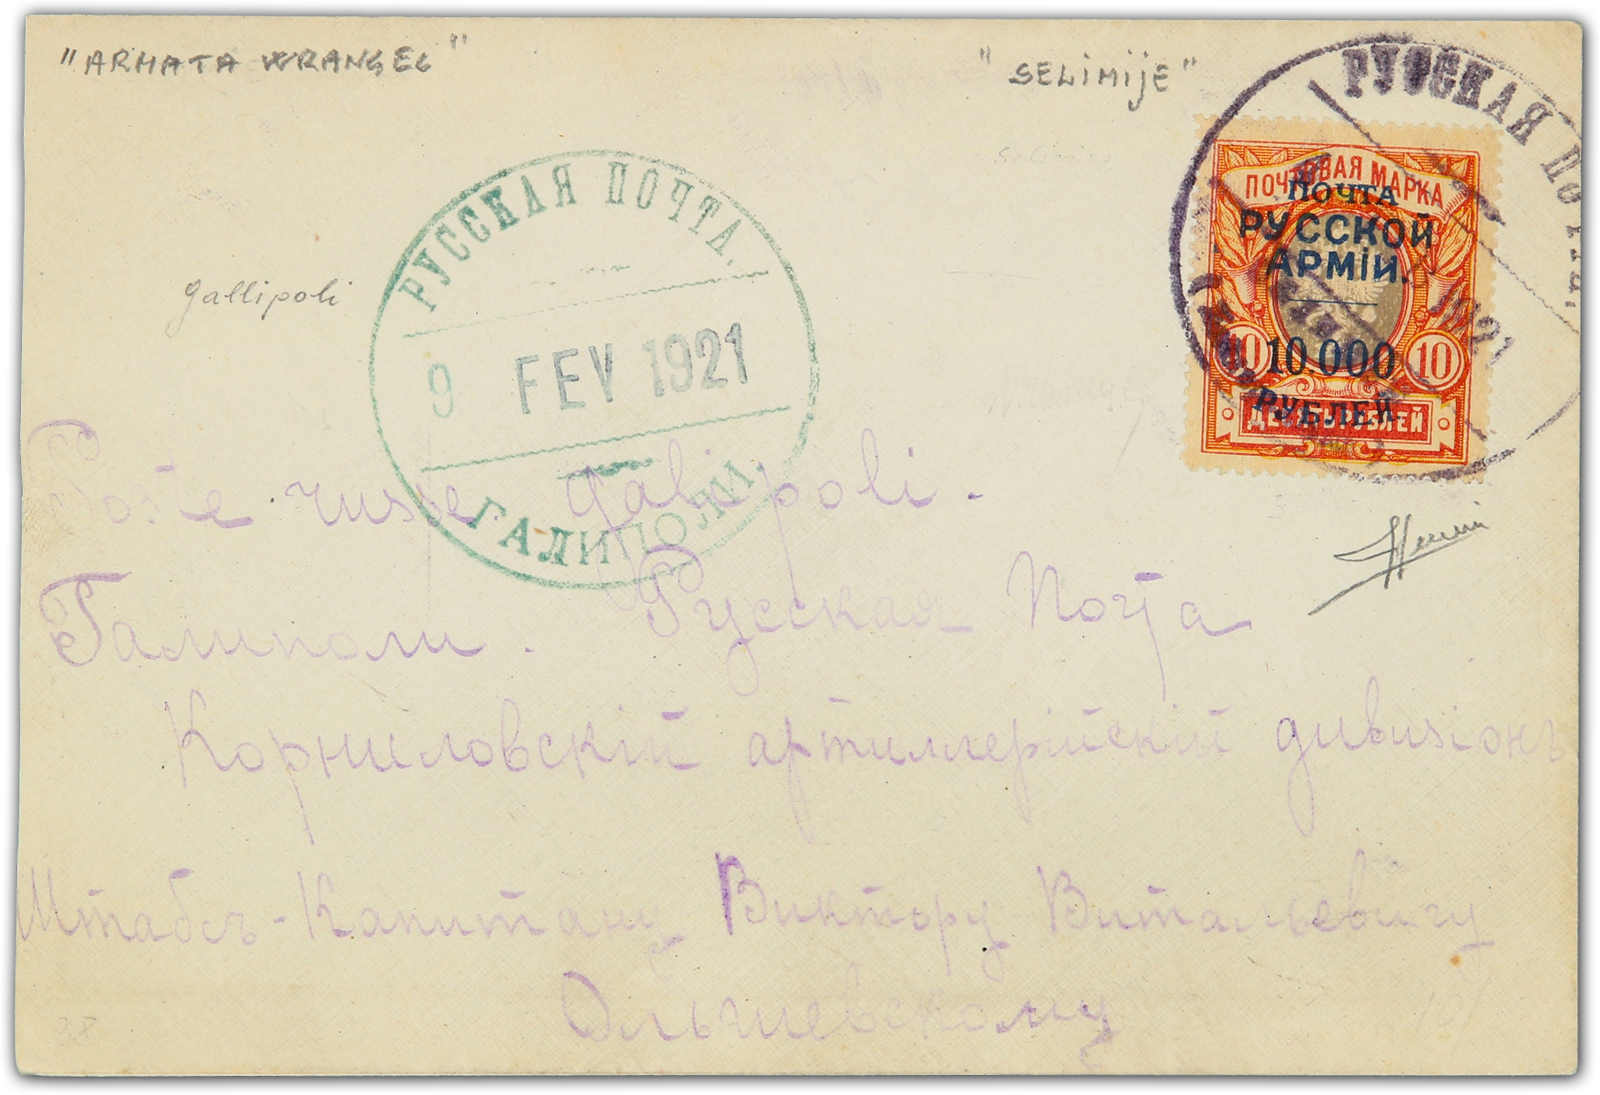 "ARMATA WRANGEL"
"SELIMIJE"
РУССКАЯ ПОЧТА.
ПОЧТОВАЯ МАРКА
ПОЧТА
РУССКОЙ
АРМІИ.
10 10.000 10
РУБЛЕЙ
РУССКАЯ ПОЧТА.
gallipoli
9 FEV 1921
ГАЛИПОЛИ
Poste russe Galipoli.
Галиполи. Русская Почта
Корниловскій артиллерійскій дивизіонъ
Штабсъ-Капитану Виктору Витальевичу
Ольшевскому